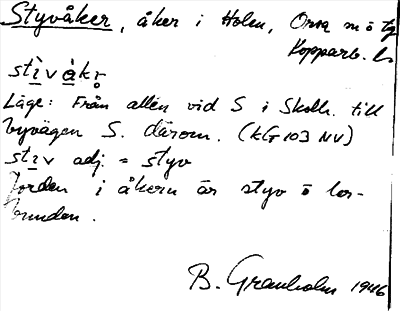 Styvåker, åker i Holm, Orsa sn
Kopparb. l.
stìvàkr̥
Läge: Från allén vid S i Skolh. till
byvägen S. därom. (kG 103 NV)
stìv adj. = styv
Jorden i åkern är styv o
bunden.
B. Granholm 1946